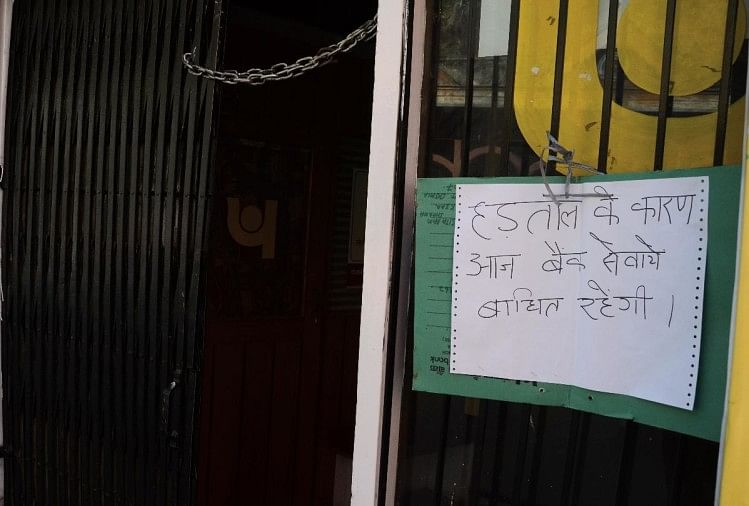 हड़ताल के कारण
आज बैंक सेवाये
बाधित रहेंगी ।
bank